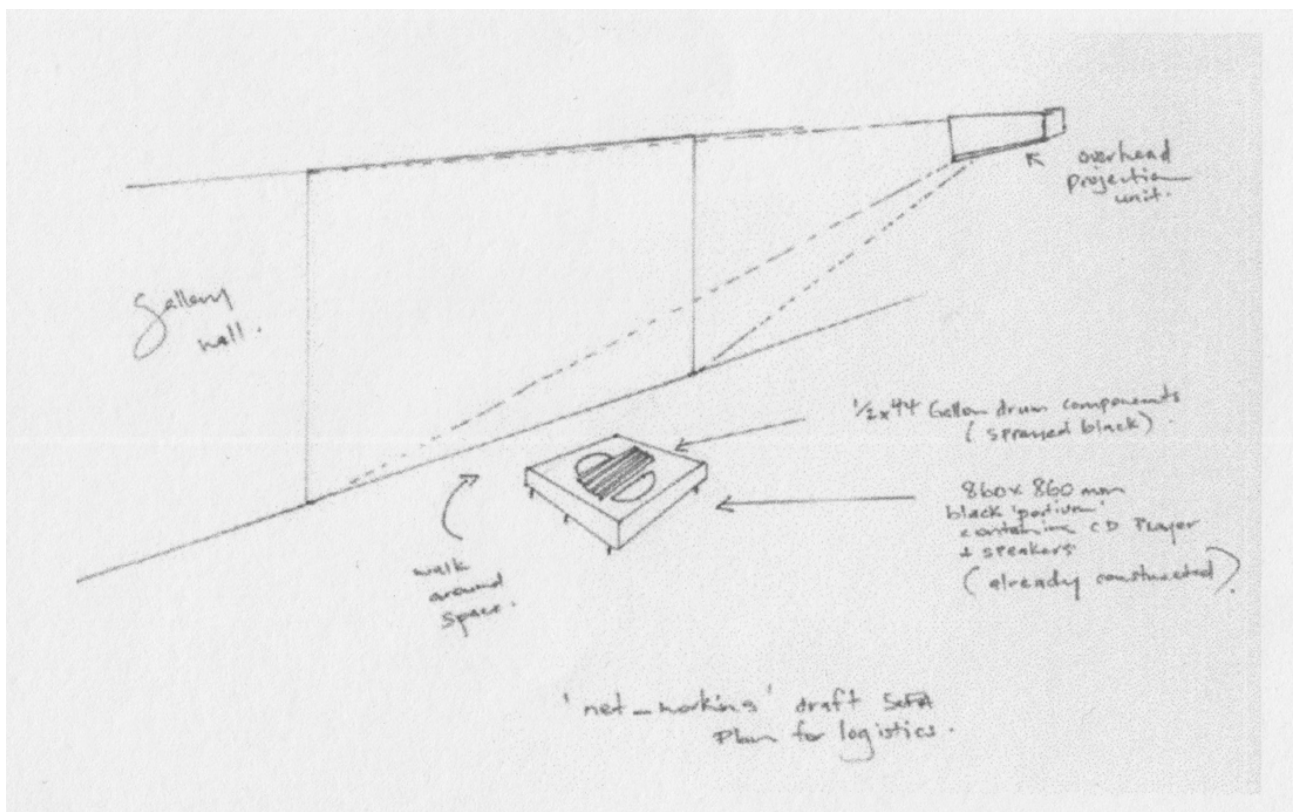 overhead
projection
unit.
Gallery
wall.
1/2 x 44 Gallon drum components
(sprayed black)
860 x 860 mm
black 'podium'
containing CD Player
+ speakers
(already constructed).
walk
around
space.
'net_workings' draft
Plan for logistics.